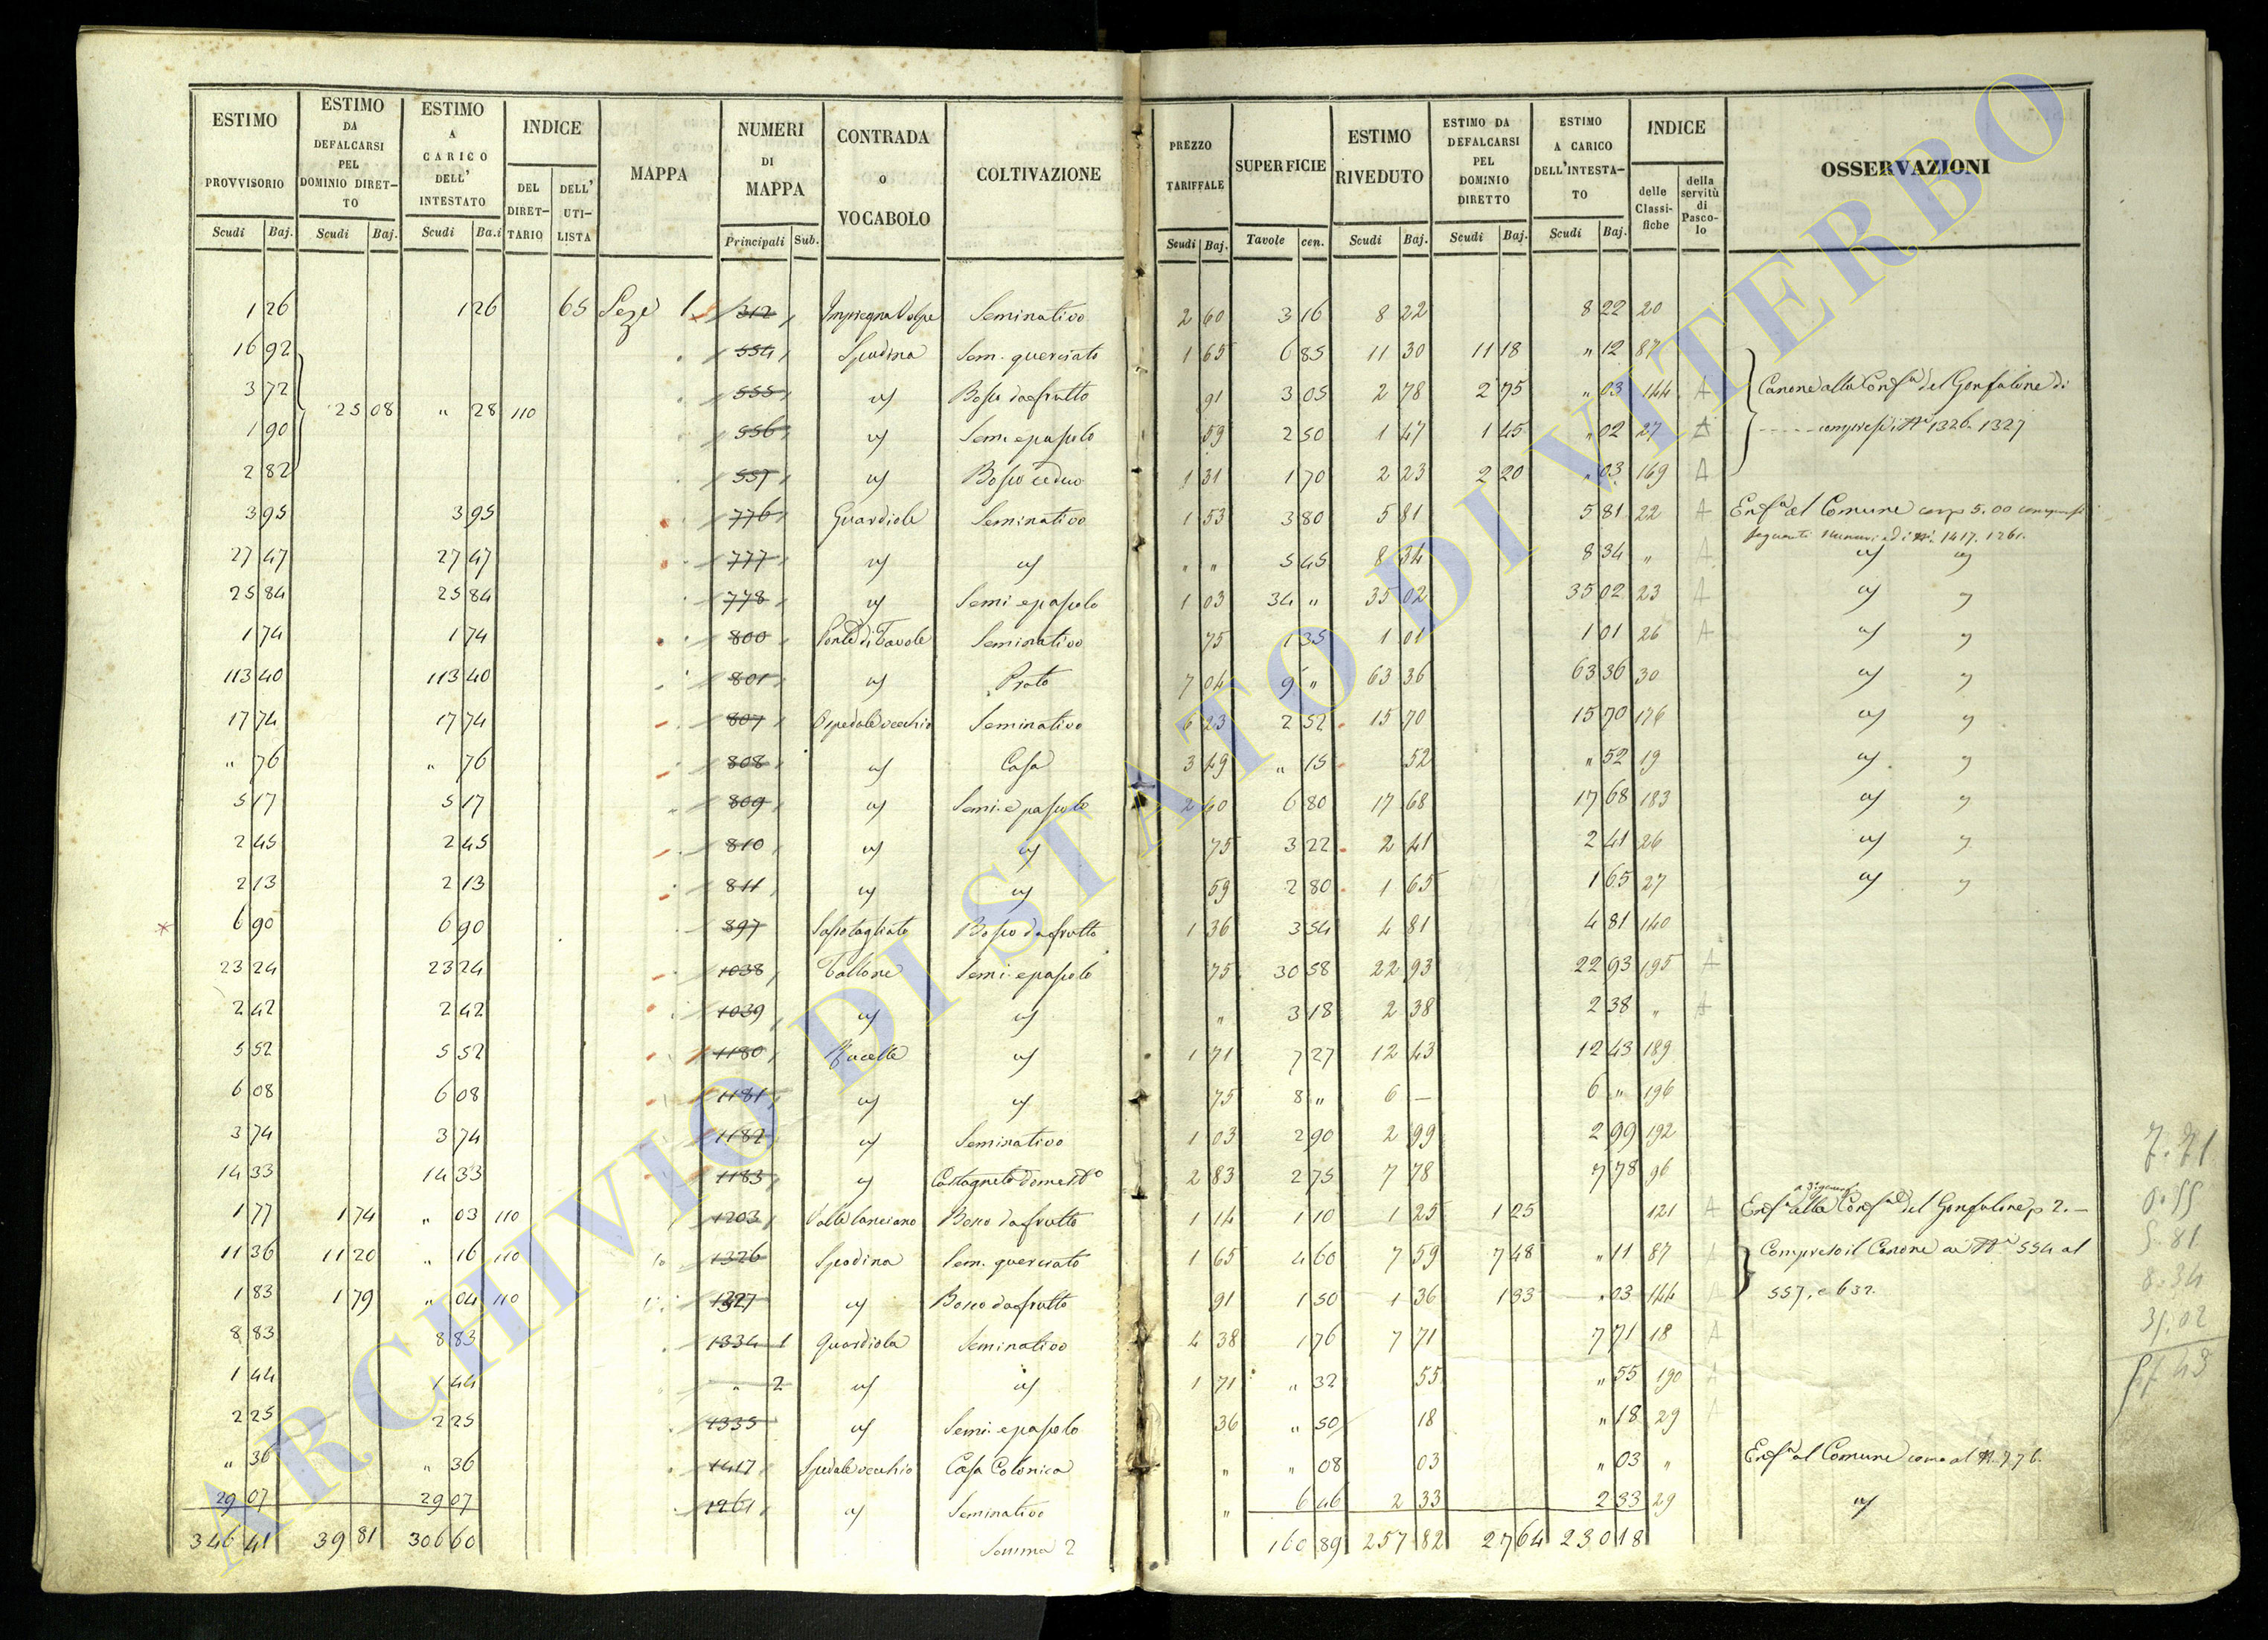 ESTIMO PROVVISORIO | ESTIMO DA DEFALCARSI PEL DOMINIO DIRETTO | ESTIMO A CARICO DELL' INTESTATO | INDICE | MAPPA | NUMERI DI MAPPA | CONTRADA O VOCABOLO | COLTIVAZIONE | PREZZO TARIFFALE | SUPERFICIE | ESTIMO RIVEDUTO | ESTIMO DA DEFALCARSI PEL DOMINIO DIRETTO | ESTIMO A CARICO DELL'INTESTATO | INDICE | OSSERVAZIONI
DEL DIRETTARIO | DELL' UTILISTA | delle Classifiche | della servitù di Pascolo
Scudi | Baj. | Scudi | Baj. | Scudi | Ba.i | Principali | Sub. | Scudi | Baj. | Tavole | cen. | Scudi | Baj. | Scudi | Baj. | Scudi | Baj.
1 26 | 1 26 | 65 | 1 | 312 | Impregna Volpe | Seminativo | 2 60 | 3 16 | 8 22 | 8 22 | 20
16 92 | 554 | Spodina | Sem. querciato | 1 65 | 6 85 | 11 30 | 11 18 | " 12 | 87
3 72 | 25 08 | " 28 | 110 | 555 | Bosco da frutto | 91 | 3 05 | 2 78 | 2 75 | " 03 | 144 | A | Canone alla Conf.a del Gonfalone di
1 90 | 556 | Sem. e pascolo | 59 | 2 50 | 1 47 | 1 45 | " 02 | 27 | A | compresi i N.i 1326. 1327
2 82 | 557 | Bosco ceduo | 1 31 | 1 70 | 2 23 | 2 20 | " 03 | 169 | A
3 95 | 3 95 | 776 | Guardiola | Seminativo | 1 53 | 3 80 | 5 81 | 5 81 | 22 | A | Enf.a al Comune 5.00
seguenti numeri ed i N.i 1417. 1261.
27 47 | 27 47 | 777 | " " | 5 45 | 8 34 | 8 34 | " | A
25 84 | 25 84 | 778 | Semi e pascolo | 1 03 | 34 " | 35 02 | 35 02 | 23 | A
1 74 | 1 74 | 800 | Ponte di Tavole | Seminativo | 75 | 1 35 | 1 01 | 1 01 | 26 | A
113 40 | 113 40 | 801 | Prato | 7 04 | 9 " | 63 36 | 63 36 | 30
17 74 | 17 74 | 807 | Ospedale vecchio | Seminativo | 6 23 | 2 52 | 15 70 | 15 70 | 176
" 76 | " 76 | 808 | Casa | 3 49 | " 15 | 52 | " 52 | 19
5 17 | 5 17 | 809 | Semi. e pascolo | 2 60 | 6 80 | 17 68 | 17 68 | 183
2 45 | 2 45 | 810 | 75 | 3 22 | 2 41 | 2 41 | 26
2 13 | 2 13 | 811 | 59 | 2 80 | 1 65 | 1 65 | 27
6 90 | 6 90 | 897 | Sassotagliato | Bosco da frutto | 1 36 | 3 54 | 4 81 | 4 81 | 140
23 24 | 23 24 | 1038 | Tallone | Semi. e pascolo | 75 | 30 58 | 22 93 | 22 93 | 195 | A
2 42 | 2 42 | 1039 | " | 3 18 | 2 38 | 2 38 | " | A
5 52 | 5 52 | 1180 | 1 71 | 7 27 | 12 43 | 12 43 | 189
6 08 | 6 08 | 1181 | 75 | 8 " | 6 — | 6 " | 196
3 74 | 3 74 | 1182 | Seminativo | 1 03 | 2 90 | 2 99 | 2 99 | 192
14 33 | 14 33 | 1183 | Castagneto domest.o | 2 83 | 2 75 | 7 78 | 7 78 | 96
1 77 | 1 74 | " 03 | 110 | 1203 | Valle Lanciano | Bosco da frutto | 1 14 | 1 10 | 1 25 | 1 25 | 121 | A | Enf.a alla Conf.a del Gonfalone p 2.—
11 36 | 11 20 | " 16 | 110 | 1326 | Spodina | Sem. querciato | 1 65 | 4 60 | 7 59 | 7 48 | " 11 | 87 | A | Compreso il Canone ai N.i 554 al
1 83 | 1 79 | " 04 | 110 | 1327 | Bosco da frutto | 91 | 1 50 | 1 36 | 1 33 | " 03 | 144 | 557. e 632.
8 83 | 8 83 | 1334 | 1 | Guardiola | Seminativo | 4 38 | 1 76 | 7 71 | 7 71 | 18 | A
1 44 | 1 44 | " | 2 | 1 71 | " 32 | 55 | " 55 | 190 | A
2 25 | 2 25 | 1335 | Semi. e pascolo | 36 | " 50 | 18 | " 18 | 29
" 36 | " 36 | 1417 | Spedale vecchio | Casa Colonica | " | " 08 | 03 | " 03 | " | Enf.a al Comune come al N. 776.
29 07 | 29 07 | 1261 | Seminativo | " | 6 46 | 2 33 | 2 33 | 29
346 41 | 39 81 | 306 60 | Somma 2 | 160 89 | 257 82 | 27 64 | 230 18
7.71
0.55
5.81
8.34
35.02
57.43
ARCHIVIO DI STATO DI VITERBO